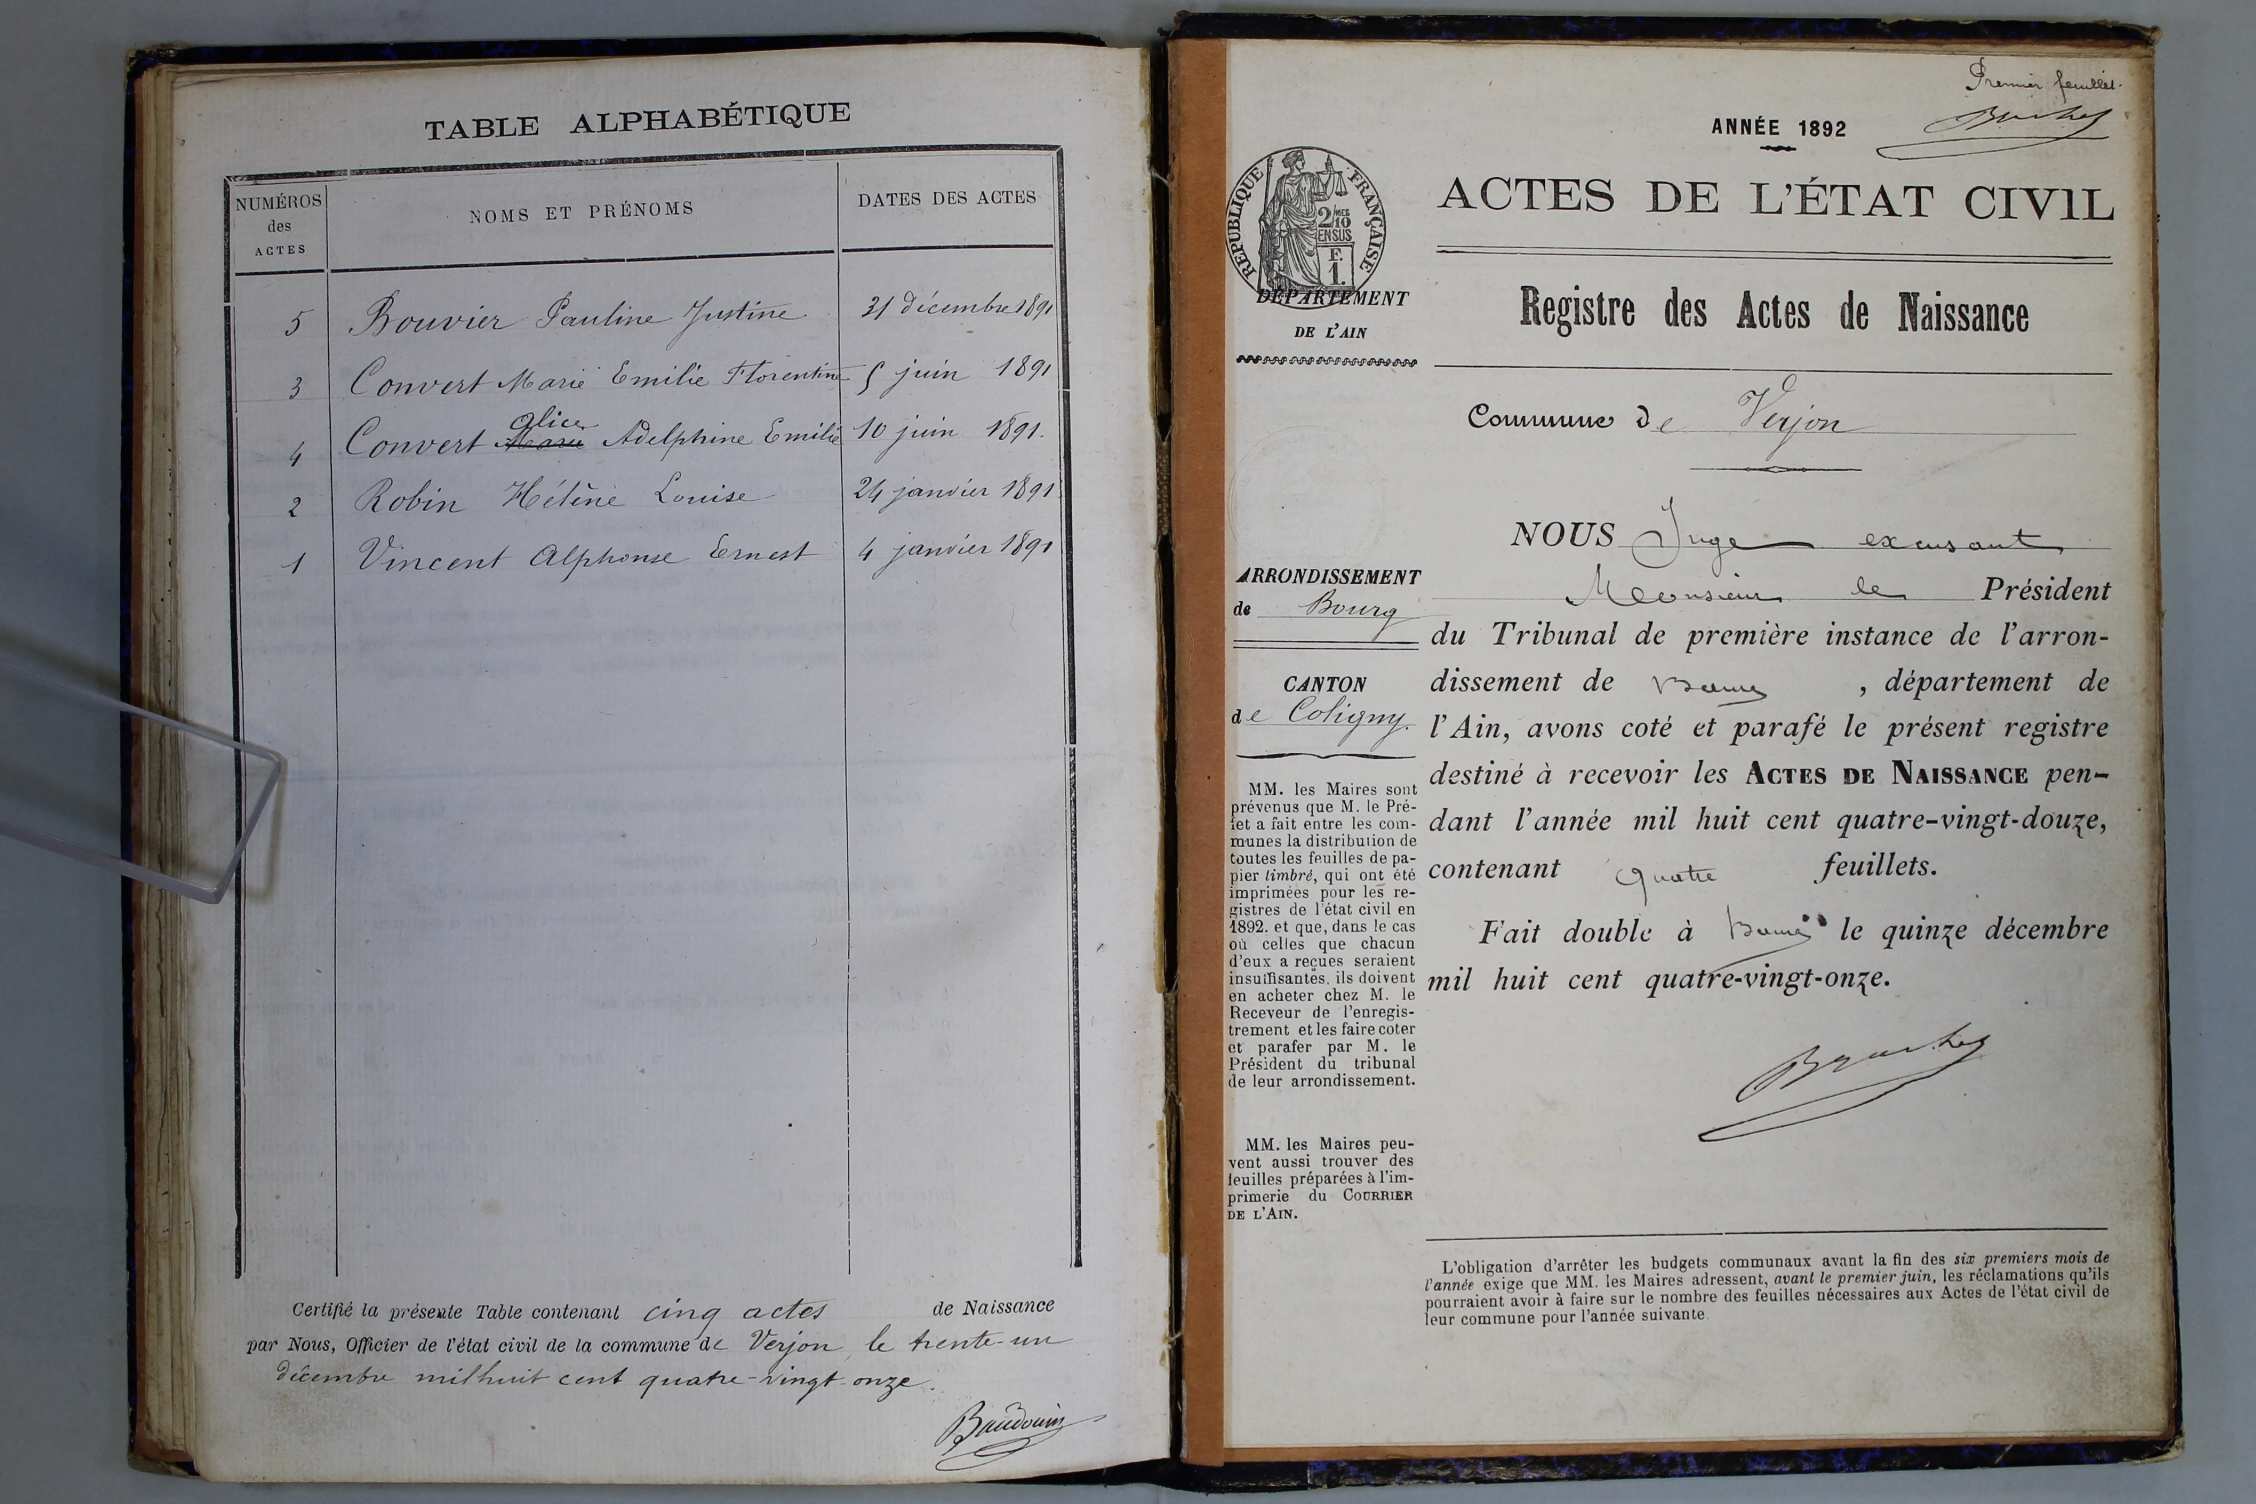 TABLE ALPHABÉTIQUE
NUMÉROS des ACTES
NOMS ET PRÉNOMS
DATES DES ACTES
5 Bouvier Pauline Justine 31 décembre 1891
3 Convert Marie Emilie Florentine 5 juin 1891
Alice
4 Convert Marie Adelphine Emilie 10 juin 1891.
2 Robin Hélène Louise 24 janvier 1891
1 Vincent Alphonse Ernest 4 janvier 1891
Certifié la présente Table contenant cinq actes de Naissance
par Nous, Officier de l'état civil de la commune de Verjon, le trente-un
décembre mil huit cent quatre-vingt-onze.
Baudouin
Premier feuillet.
ANNÉE 1892
ACTES DE L'ÉTAT CIVIL
RÉPUBLIQUE FRANÇAISE
2/10
EN SUS
F.
1.
DÉPARTEMENT
DE L'AIN
Registre des Actes de Naissance
Commune de Verjon
ARRONDISSEMENT
de Bourg
CANTON
de Coligny.
MM. les Maires sont
prévenus que M. le Pré-
fet a fait entre les com-
munes la distribution de
toutes les feuilles de pa-
pier timbré, qui ont été
imprimées pour les re-
gistres de l'état civil en
1892. et que, dans le cas
où celles que chacun
d'eux a reçues seraient
insuffisantes, ils doivent
en acheter chez M. le
Receveur de l'enregis-
trement et les faire coter
et parafer par M. le
Président du tribunal
de leur arrondissement.
MM. les Maires peu-
vent aussi trouver des
feuilles préparées à l'im-
primerie du COURRIER
DE L'AIN.
NOUS Juge excusant
Monsieur le Président
du Tribunal de première instance de l'arron-
dissement de Bourg, département de
l'Ain, avons coté et parafé le présent registre
destiné à recevoir les ACTES DE NAISSANCE pen-
dant l'année mil huit cent quatre-vingt-douze,
contenant quatre feuillets.
Fait double à Bourg le quinze décembre
mil huit cent quatre-vingt-onze.
L'obligation d'arrêter les budgets communaux avant la fin des six premiers mois de
l'année exige que MM. les Maires adressent, avant le premier juin, les réclamations qu'ils
pourraient avoir à faire sur le nombre des feuilles nécessaires aux Actes de l'état civil de
leur commune pour l'année suivante.